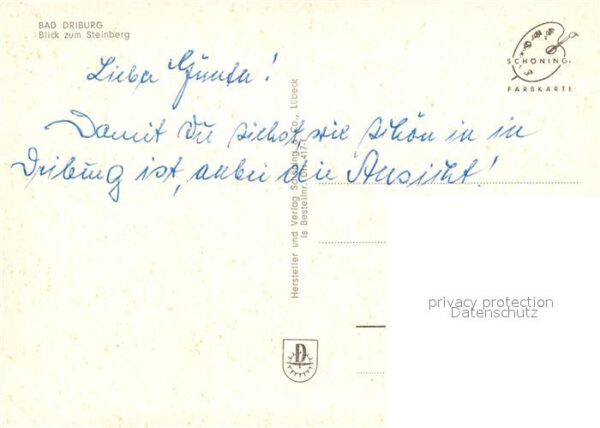 BAD DRIBURG
Blick zum Steinberg
SCHÖNING
FARBKARTE
Liebe Günta!
Damit Du siehst, wie schön in in
Driburg ist, anbei die Ansicht!
Hersteller und Verlag Schöning & Co., Lübeck
is Bestellnr.
privacy protection
Datenschutz